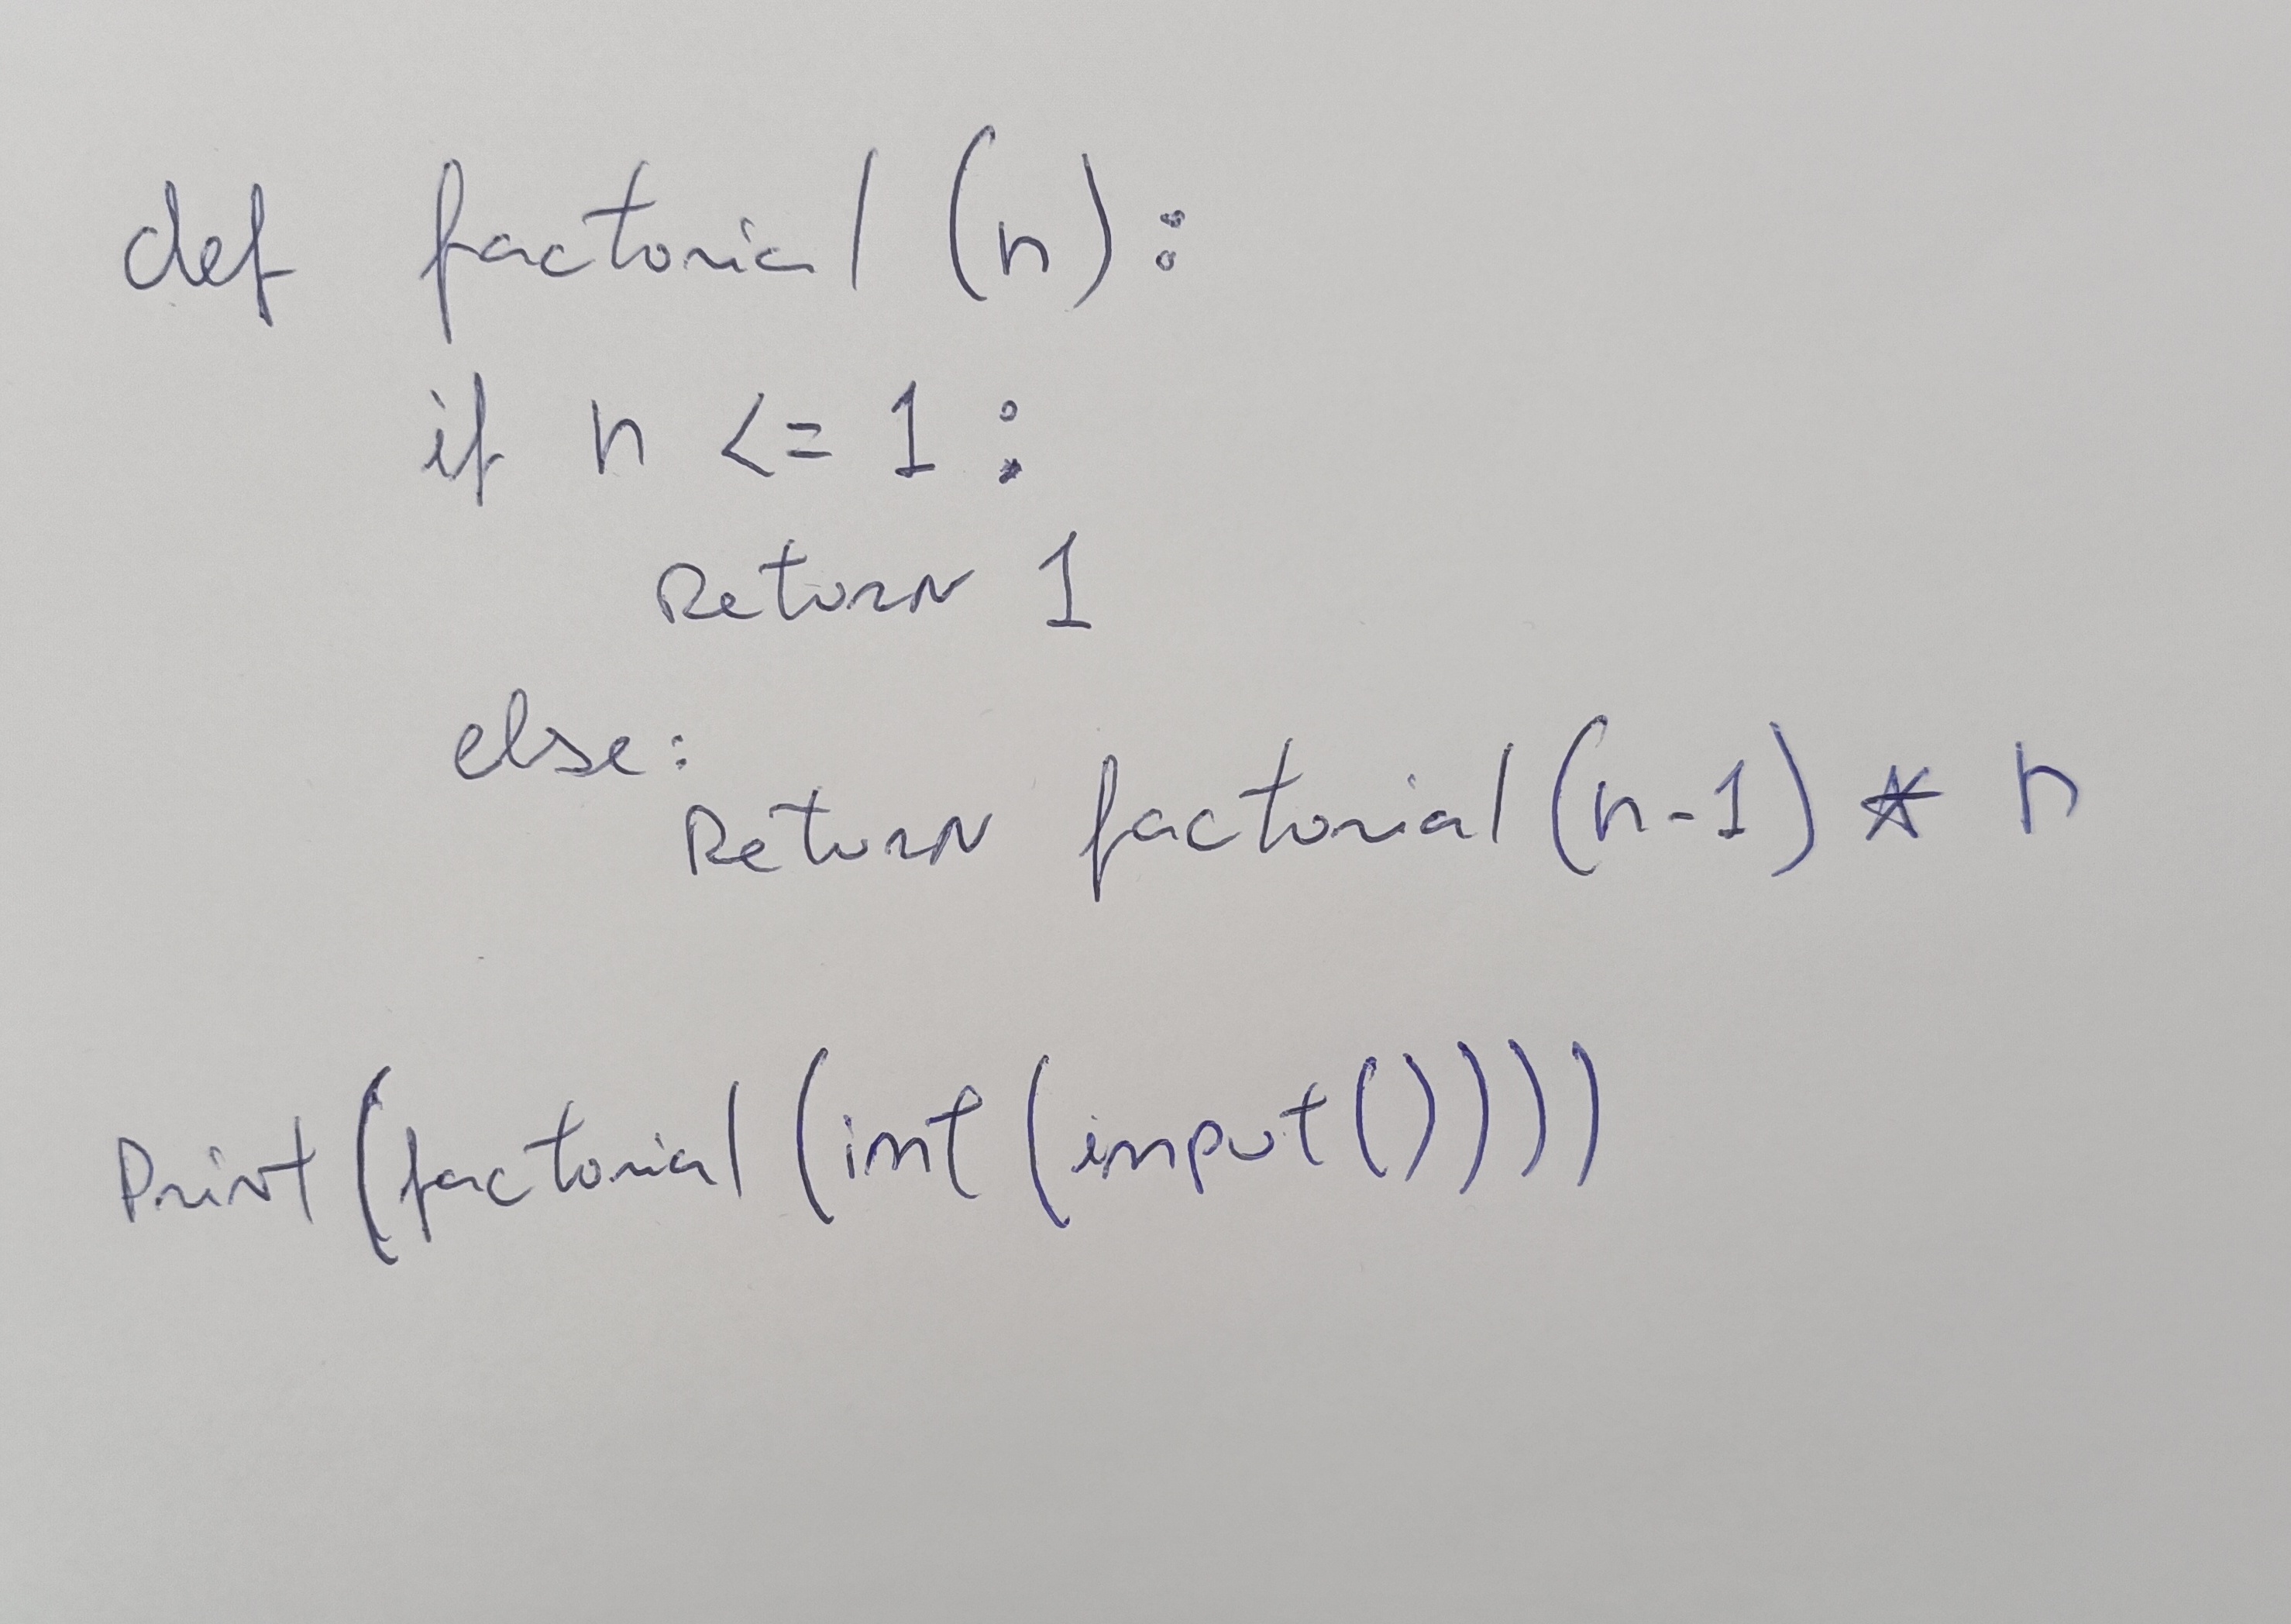 def factorial (n):
if n <= 1 :
Return 1
else:
Return factorial (n-1) * n
Print (factorial (int (input())))